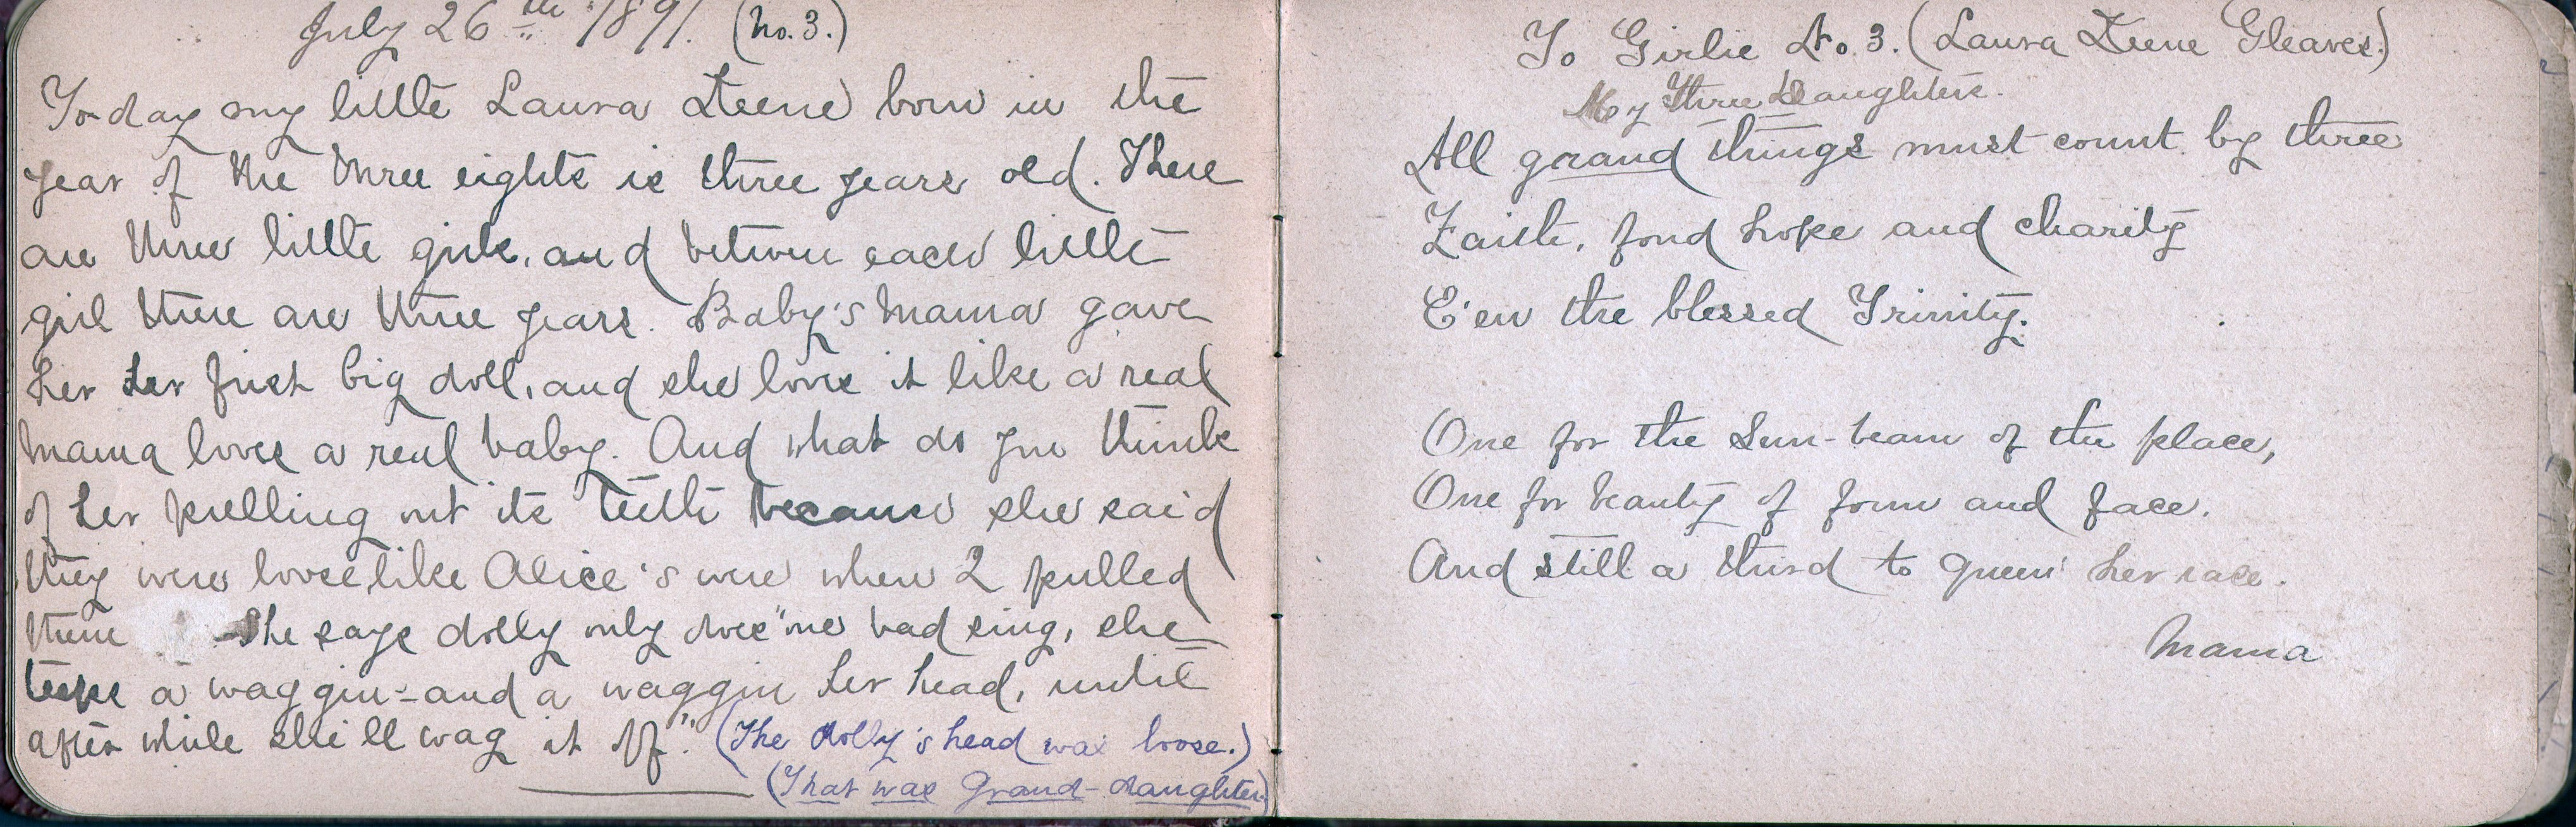 July 26th 1891. (No. 3.)
To-day my little Laura Keene born in the
year of the three eights is three years old. There
are three little girls, and between each little
girl there are three years. Baby's Mama gave
her her first big doll, and she loves it like a real
Mama loves a real baby. And what do you think
of her pulling out its teeth because she said
they were loose like Alice's were when I pulled
them She says dolly only does "one bad sing, she
teeps a waggin- and a waggin her head, until
after while she'll wag it off." (The dolly's head was loose.)
(That was Grand-daughter)
To Girlie No. 3. (Laura Keene Gleaves.)
My Three Daughters.
All grand things must count by three
Faith, fond hope and charity
E'en the blessed Trinity.
One for the Sun-beam of the place,
One for beauty of form and face.
And still a third to queen her race.
Mama